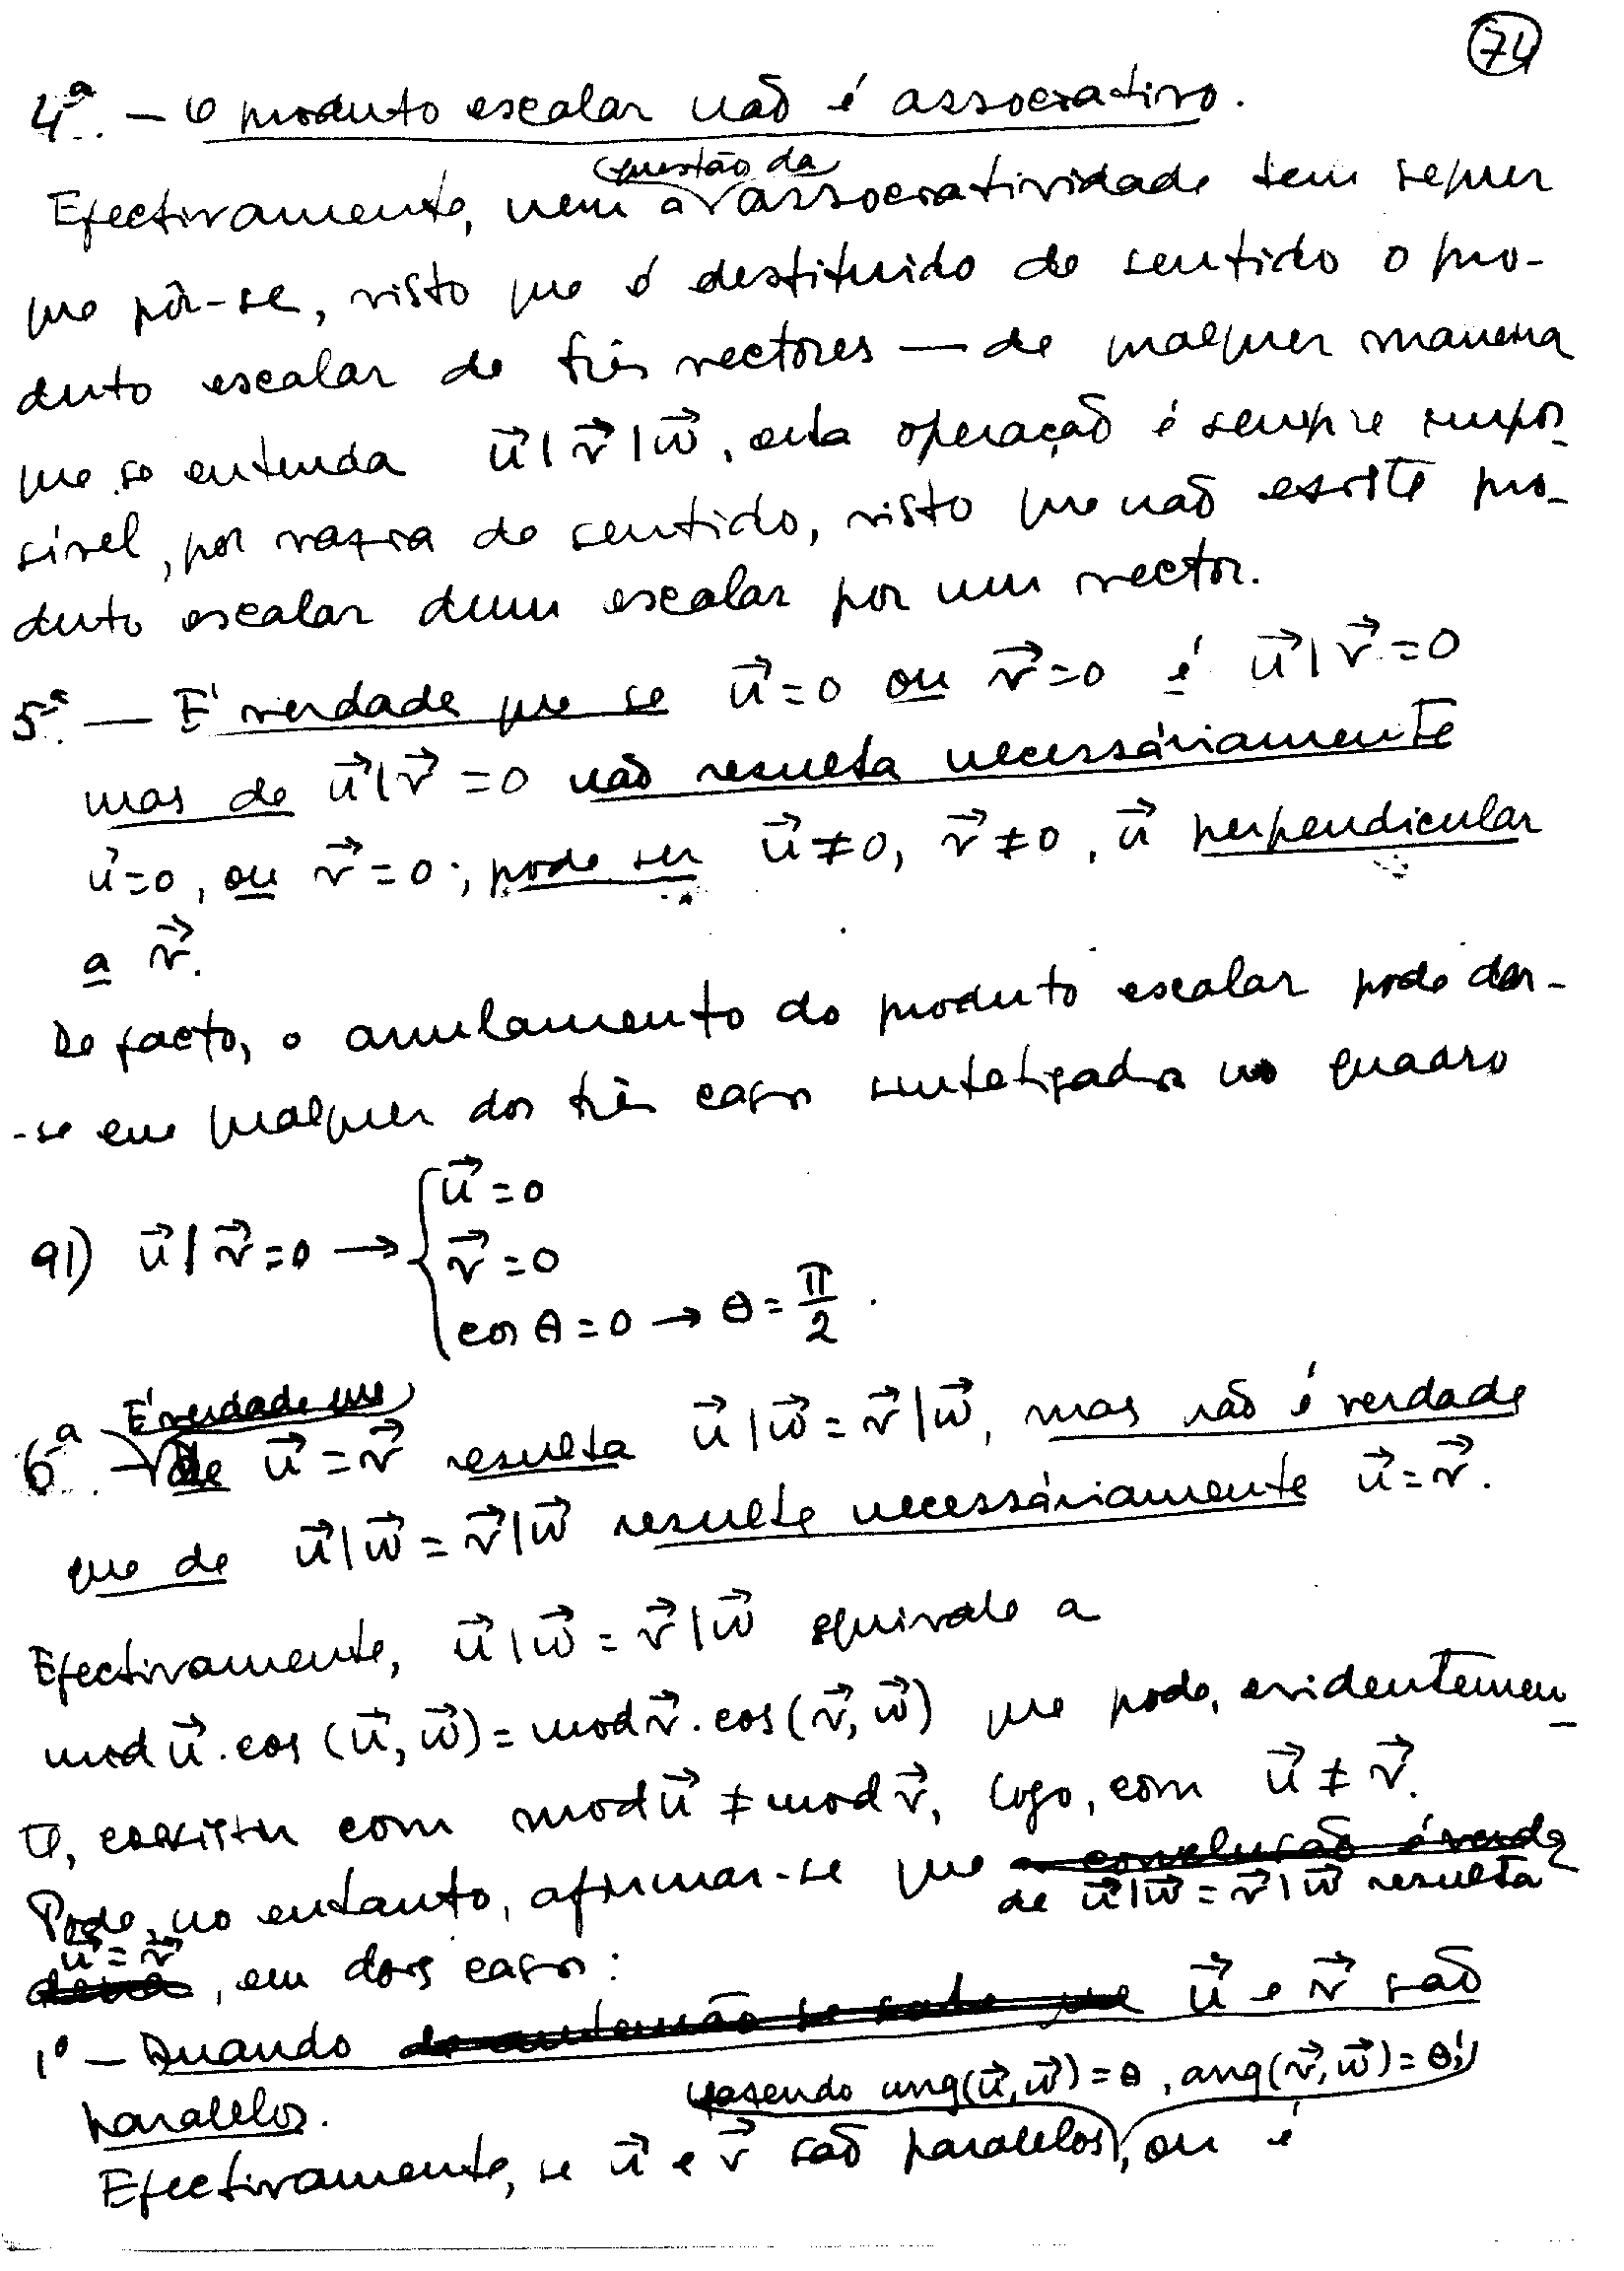 74
4ª. — O produto escalar não é associativo.
questão da
Efectivamente, nem a associatividade tem sequer
que pôr-se, visto que é destituído de sentido o pro-
duto escalar de três vectores — de qualquer maneira
que se entenda u⃗ | v⃗ | w⃗, esta operação é sempre impos
sível, por vazia de sentido, visto que não existe pro-
duto escalar dum escalar por um vector.
5ª. — É verdade que se u⃗ = 0 ou v⃗ = 0 é u⃗ | v⃗ = 0
mas de u⃗ | v⃗ = 0 não resulta necessàriamente
u⃗ = 0, ou v⃗ = 0; pode ser u⃗ ≠ 0, v⃗ ≠ 0, u⃗ perpendicular
a v⃗.
De facto, o anulamento do produto escalar pode dar-
-se em qualquer dos três casos sintetizados no quadro
91) u⃗ | v⃗ = 0 → { u⃗ = 0
v⃗ = 0
cos θ = 0 → θ = π/2 .
É verdade que
6ª. — de u⃗ = v⃗ resulta u⃗ | w⃗ = v⃗ | w⃗, mas não é verdade
que de u⃗ | w⃗ = v⃗ | w⃗ resulte necessàriamente u⃗ = v⃗.
Efectivamente, u⃗ | w⃗ = v⃗ | w⃗ equivale a
mod u⃗ . cos (u⃗, w⃗) = mod v⃗ . cos (v⃗, w⃗) que pode, evidentemen
te, coexistir com mod u⃗ ≠ mod v⃗, logo, com u⃗ ≠ v⃗.
Pode, no entanto, afirmar-se que a conclusão é verda
de u⃗ | w⃗ = v⃗ | w⃗ resulta
u⃗ = v⃗
deira, em dois casos:
1º — Quando de antemão se sabe que u⃗ e v⃗ são
paralelos.
fazendo ang(u⃗, w⃗) = θ, ang(v⃗, w⃗) = θ',
Efectivamente, se u⃗ e v⃗ são paralelos, ou é